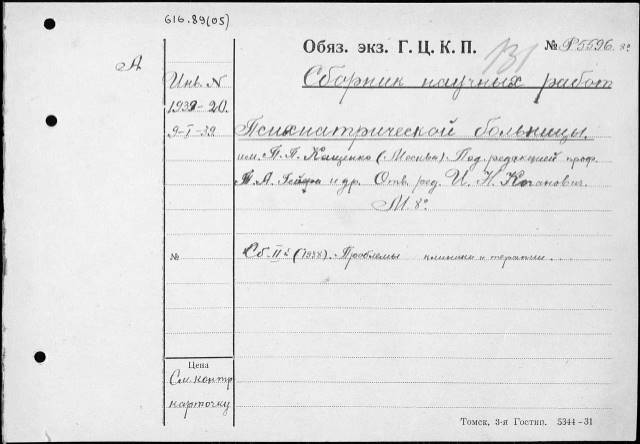 616.89(05)
Обяз. экз. Г. Ц. К. П. № P5596. 8°
А
131
Инв. N
1939-20.
9-I-39
Сборник научных работ
Психиатрической больницы
им. П. П. Кащенко (Москва). Под редакцией проф.
Т. А. Гейера и др. Отв. ред. И. Н. Каганович.
М. 8°
№
Сб. II й (1938). Проблемы клиники и терапии...
Цена
См. контр
карточку
Томск, 3-я Гостип. 5344—31